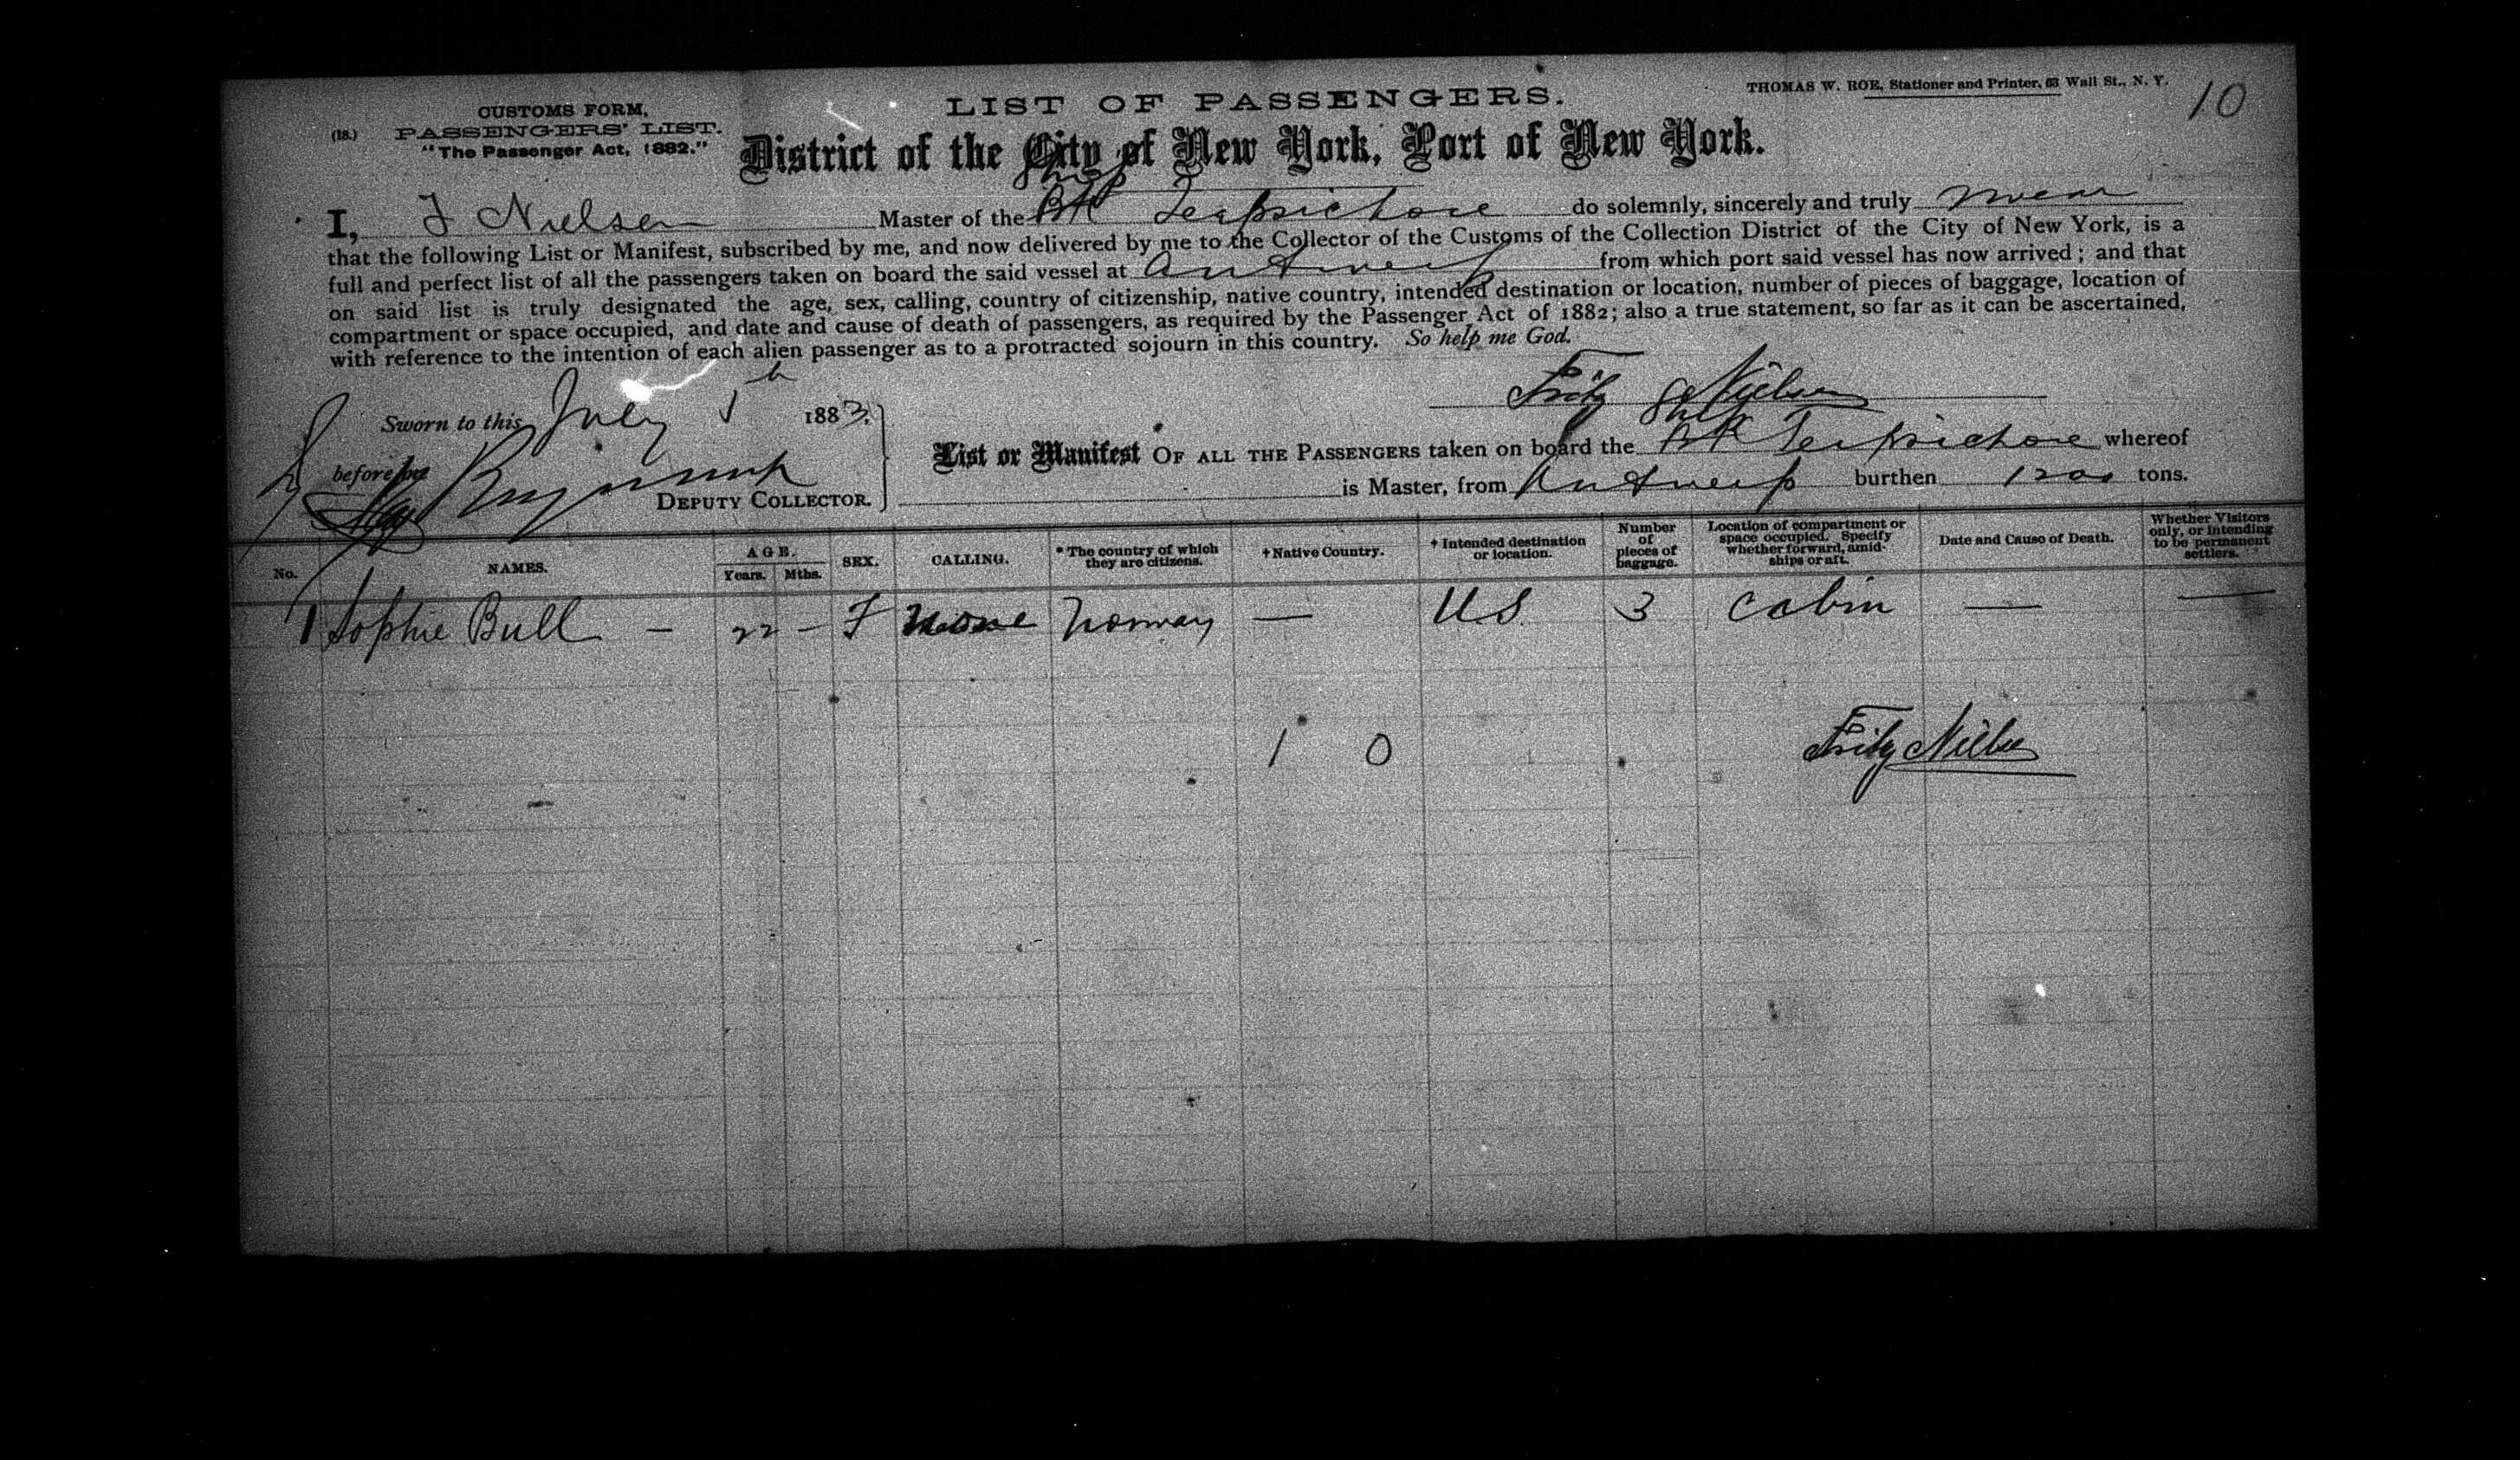 THOMAS W. ROE, Stationer and Printer, 63 Wall St., N. Y.
10
CUSTOMS FORM,
(18.) PASSENGERS' LIST.
"The Passenger Act, 1882."
LIST OF PASSENGERS.
District of the City of New York, Port of New York.
Ship
I, F Nielsen Master of the Bk Terpsichore do solemnly, sincerely and truly swear
that the following List or Manifest, subscribed by me, and now delivered by me to the Collector of the Customs of the Collection District of the City of New York, is a
full and perfect list of all the passengers taken on board the said vessel at Antwerp from which port said vessel has now arrived; and that
on said list is truly designated the age, sex, calling, country of citizenship, native country, intended destination or location, number of pieces of baggage, location of
compartment or space occupied, and date and cause of death of passengers, as required by the Passenger Act of 1882; also a true statement, so far as it can be ascertained,
with reference to the intention of each alien passenger as to a protracted sojourn in this country. So help me God.
Fritz Nielsen
Sworn to this July 5th 1883.
before me
DEPUTY COLLECTOR.
Ship
List or Manifest OF ALL THE PASSENGERS taken on board the Bk Terpsichore whereof
is Master, from Antwerp burthen 1200 tons.
No. NAMES. AGE. Years. Mths. SEX. CALLING. * The country of which they are citizens. † Native Country. † Intended destination or location. Number of pieces of baggage. Location of compartment or space occupied. Specify whether forward, amidships or aft. Date and Cause of Death. Whether Visitors only, or intending to be permanent settlers.
1 Sophie Bull — 22 — F None Norway — US 3 Cabin — —
1 0
Fritz Nielsen